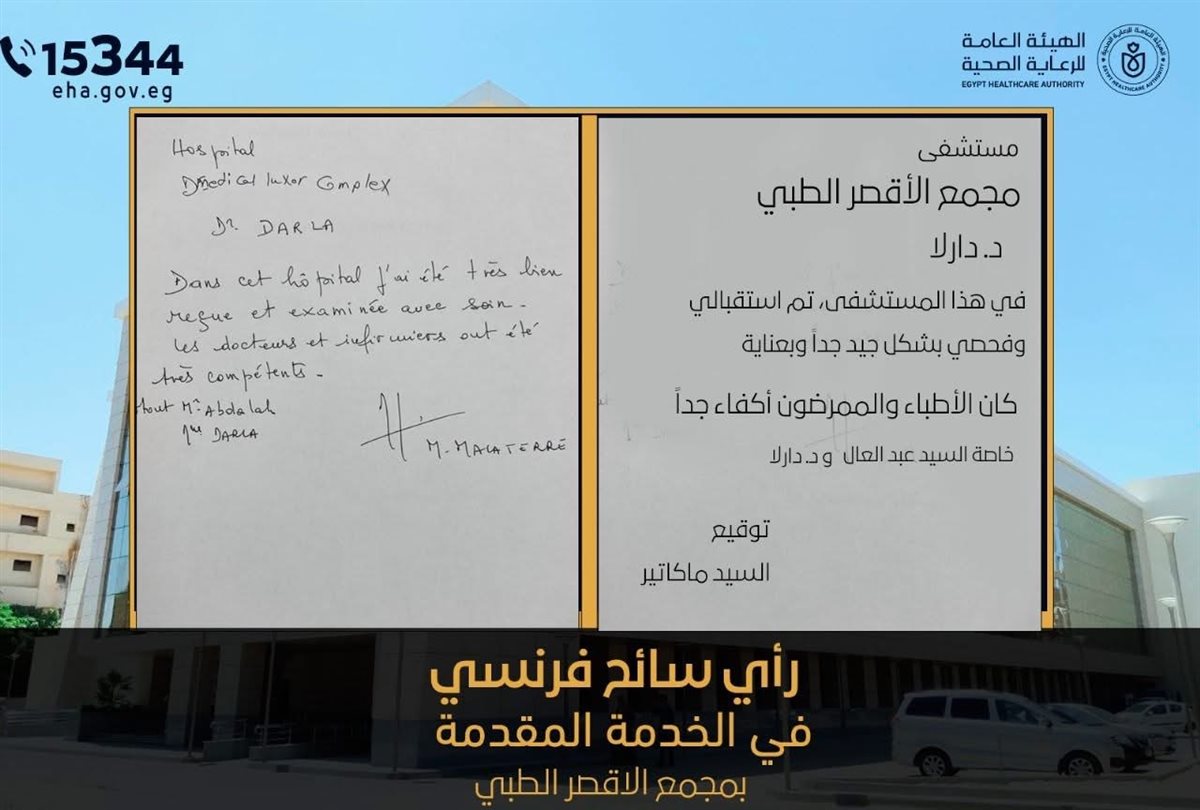 15344
eha.gov.eg
الهيئة العامة
للرعاية الصحية
EGYPT HEALTHCARE AUTHORITY
Hospital
Medical luxor Complex
Dr DARLA
Dans cet hôpital j'ai été très bien
reçue et examinée avec soin.
Les docteurs et infirmiers ont été
très compétents.
Mr Abdalah
DARLA
M. MALATERRE
مستشفى
مجمع الأقصر الطبي
د. دارلا
في هذا المستشفى، تم استقبالي
وفحصي بشكل جيد جداً وبعناية
كان الأطباء والممرضون أكفاء جداً
خاصة السيد عبد العال و د.دارلا
توقيع
السيد ماكاتير
رأي سائح فرنسي
في الخدمة المقدمة
بمجمع الاقصر الطبي